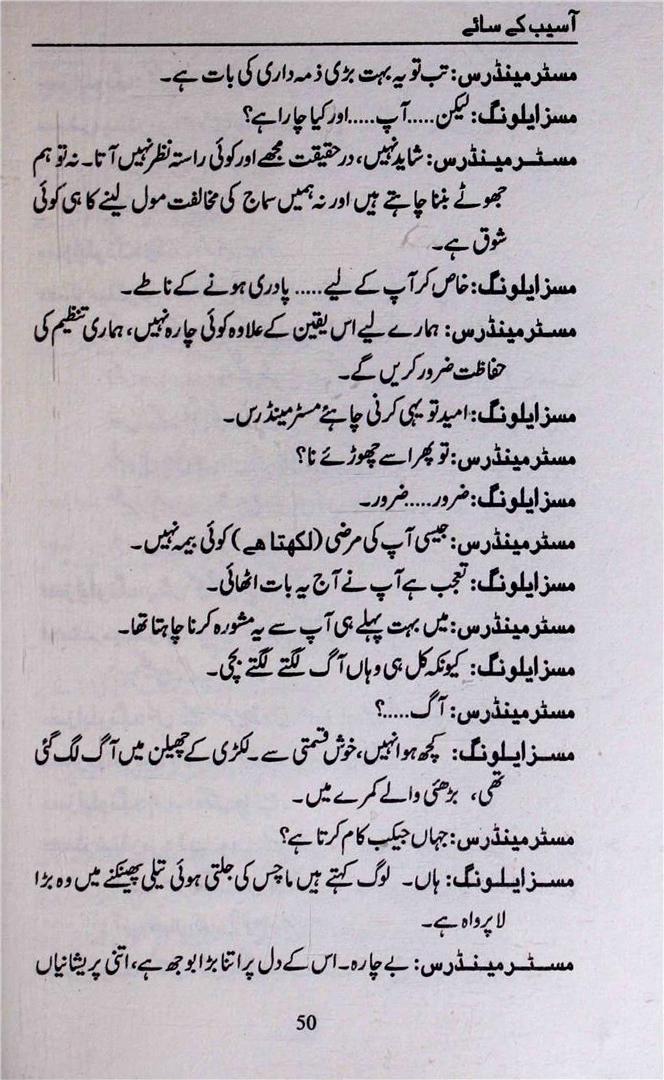 آسیب کے سائے
مسٹر مینڈرس: تب تو یہ بہت بڑی ذمہ داری کی بات ہے۔
مسز ایلونگ: لیکن.....آپ.....اور کیا چارا ہے؟
مسٹر مینڈرس: شاید نہیں، در حقیقت مجھے اور کوئی راستہ نظر نہیں آتا۔ نہ تو ہم
جھوٹے بننا چاہتے ہیں اور نہ ہمیں سماج کی مخالفت مول لینے کا ہی کوئی
شوق ہے۔
مسز ایلونگ: خاص کر آپ کے لیے..... پادری ہونے کے ناطے۔
مسٹر مینڈرس: ہمارے لیے اس یقین کے علاوہ کوئی چارہ نہیں، ہماری تنظیم کی
حفاظت ضرور کریں گے۔
مسز ایلونگ: امید تو یہی کرنی چاہئے مسٹر مینڈرس۔
مسٹر مینڈرس: تو پھر اسے چھوڑئے نا؟
مسز ایلونگ: ضرور.....ضرور۔
مسٹر مینڈرس: جیسی آپ کی مرضی (لکھتا ھے) کوئی بیمہ نہیں۔
مسز ایلونگ: تعجب ہے آپ نے آج یہ بات اٹھائی۔
مسٹر مینڈرس: میں بہت پہلے ہی آپ سے یہ مشورہ کرنا چاہتا تھا۔
مسز ایلونگ: کیونکہ کل ہی وہاں آگ لگتے لگتے بچی۔
مسٹر مینڈرس: آگ.....؟
مسز ایلونگ: کچھ ہوا نہیں، خوش قسمتی سے۔ لکڑی کے چھیلن میں آگ لگ گئی
تھی، بڑھئی والے کمرے میں۔
مسٹر مینڈرس: جہاں جیکب کام کرتا ہے؟
مسز ایلونگ: ہاں۔ لوگ کہتے ہیں ماچس کی جلتی ہوئی تیلی پھینکنے میں وہ بڑا
لا پرواہ ہے۔
مسٹر مینڈرس: بے چارہ۔ اس کے دل پر اتنا بڑا بوجھ ہے، اتنی پریشانیاں
50